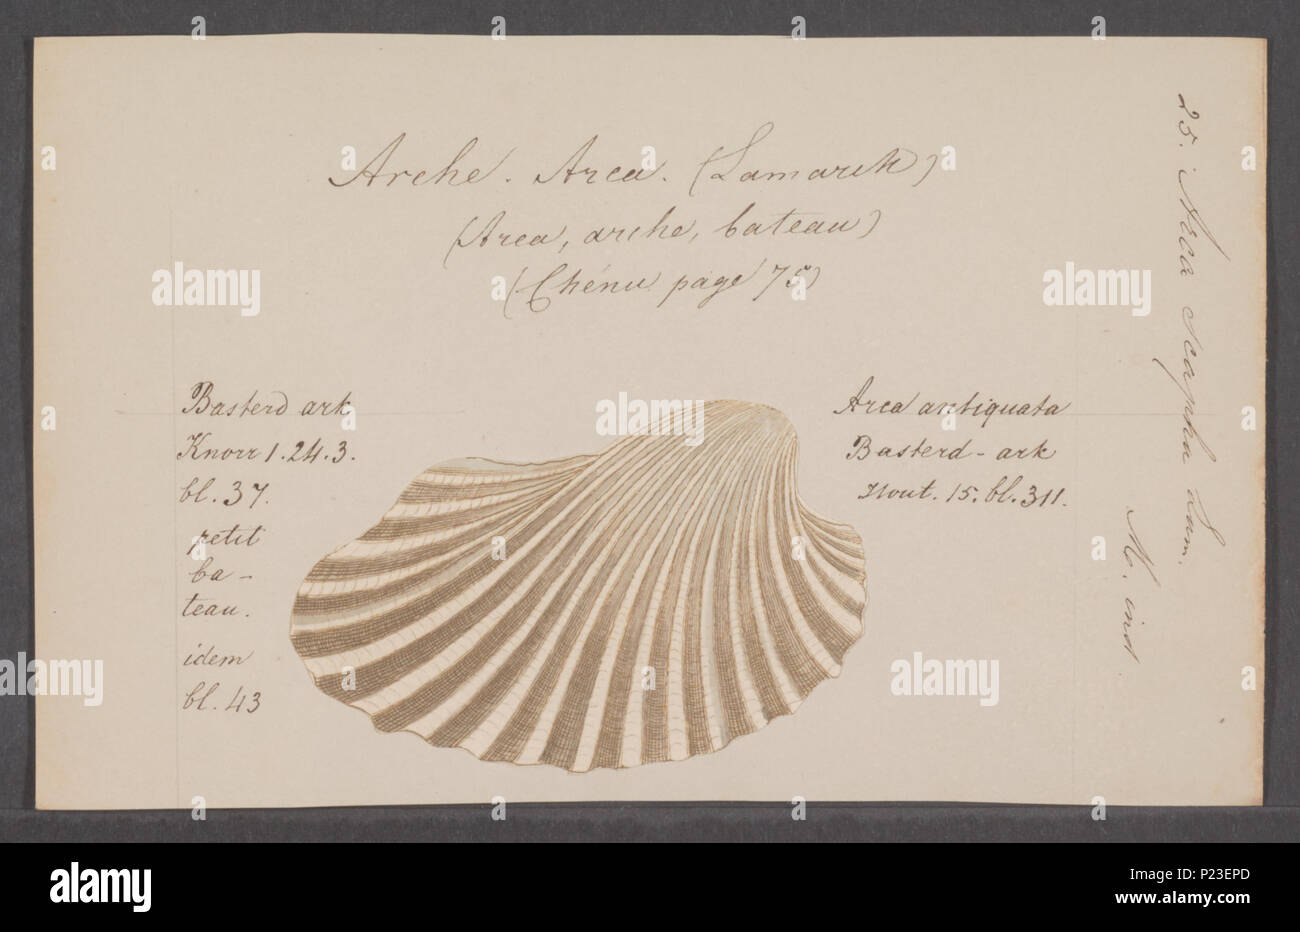 Arche. Arca. (Lamarck)
(Arca, arche, bateau)
(Chénu page 75)
Basterd ark
Knorr 1.24.3.
bl. 37.
petit
ba-
teau.
idem
bl. 43
Arca antiquata
Basterd-ark
Hout. 15. bl. 311.
25. Arca scapha Lam.
M. ind
alamy
alamy
Image ID: P23EPD
www.alamy.com